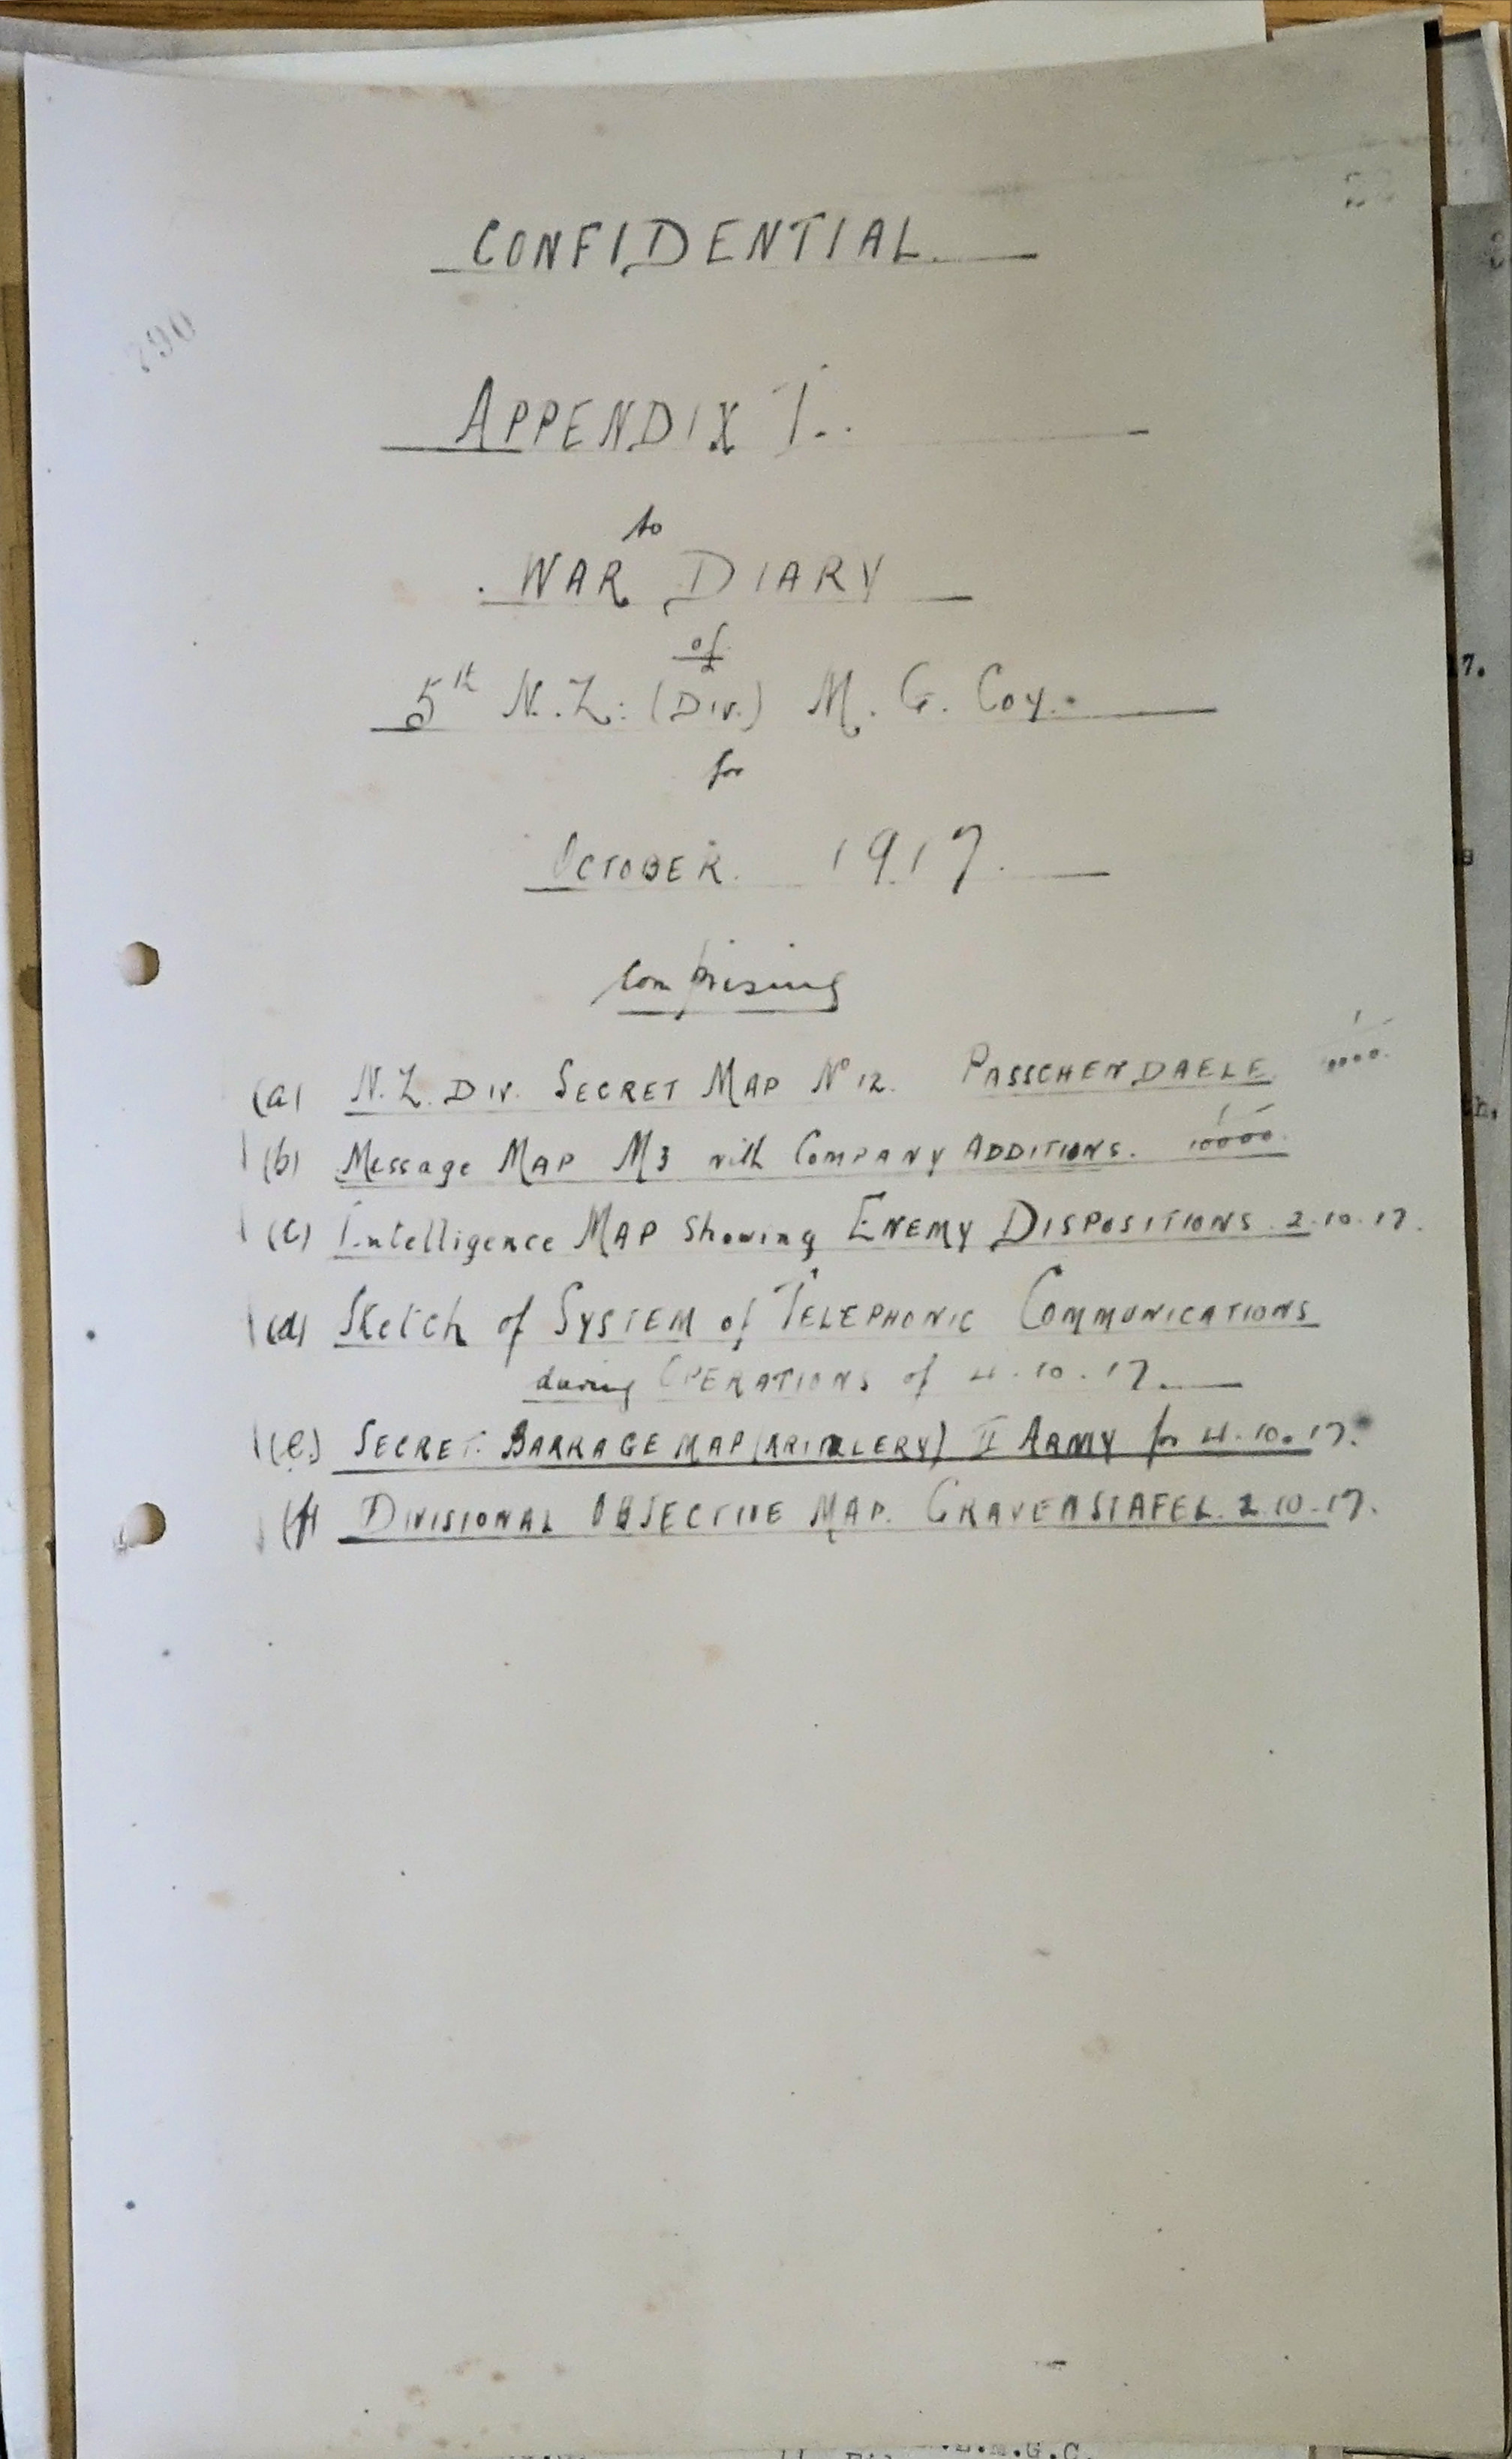 CONFIDENTIAL.
290
APPENDIX I.
to
WAR DIARY
of
5th N.Z. (DIV.) M. G. COY.
for
OCTOBER. 1917.
comprising
(a) N.Z. DIV. SECRET MAP No 12. PASSCHENDAELE 1/10000.
(b) Message MAP M3 with COMPANY ADDITIONS. 1/10000.
(c) Intelligence MAP Showing ENEMY DISPOSITIONS. 2.10.17.
(d) Sketch of SYSTEM of TELEPHONIC COMMUNICATIONS
during OPERATIONS of 4.10.17.
(e) SECRET. BARRAGE MAP (ARTILLERY) II ARMY for 4.10.17.
(f) DIVISIONAL OBJECTIVE MAP. GRAVENSTAFEL. 2.10.17.